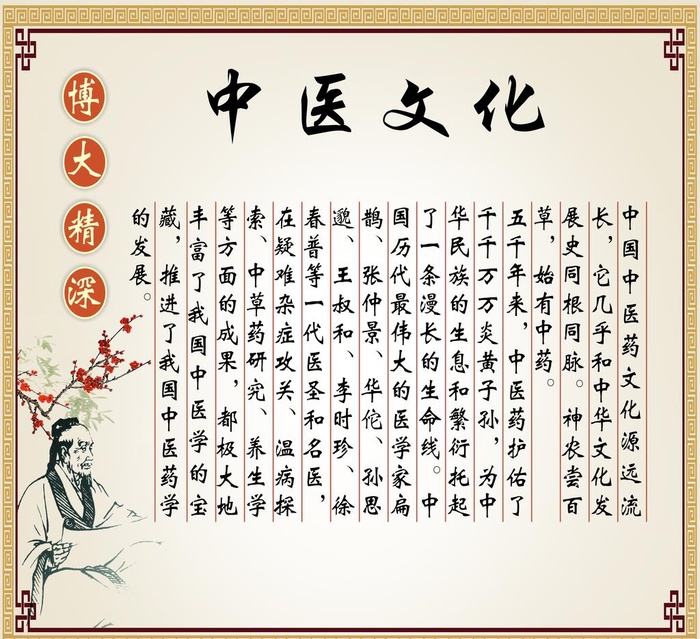 中医文化
博大精深
中国中医药文化源远流
长，它几乎和中华文化发
展史同根同脉。神农尝百
草，始有中药。
五千年来，中医药护佑了
千千万万炎黄子孙，为中
华民族的生息和繁衍托起
了一条漫长的生命线。中
国历代最伟大的医学家扁
鹊、张仲景、华佗、孙思
邈、王叔和、李时珍、徐
春普等一代医圣和名医，
在疑难杂症攻关、温病探
索、中草药研究、养生学
等方面的成果，都极大地
丰富了我国中医学的宝
藏，推进了我国中医药学
的发展。